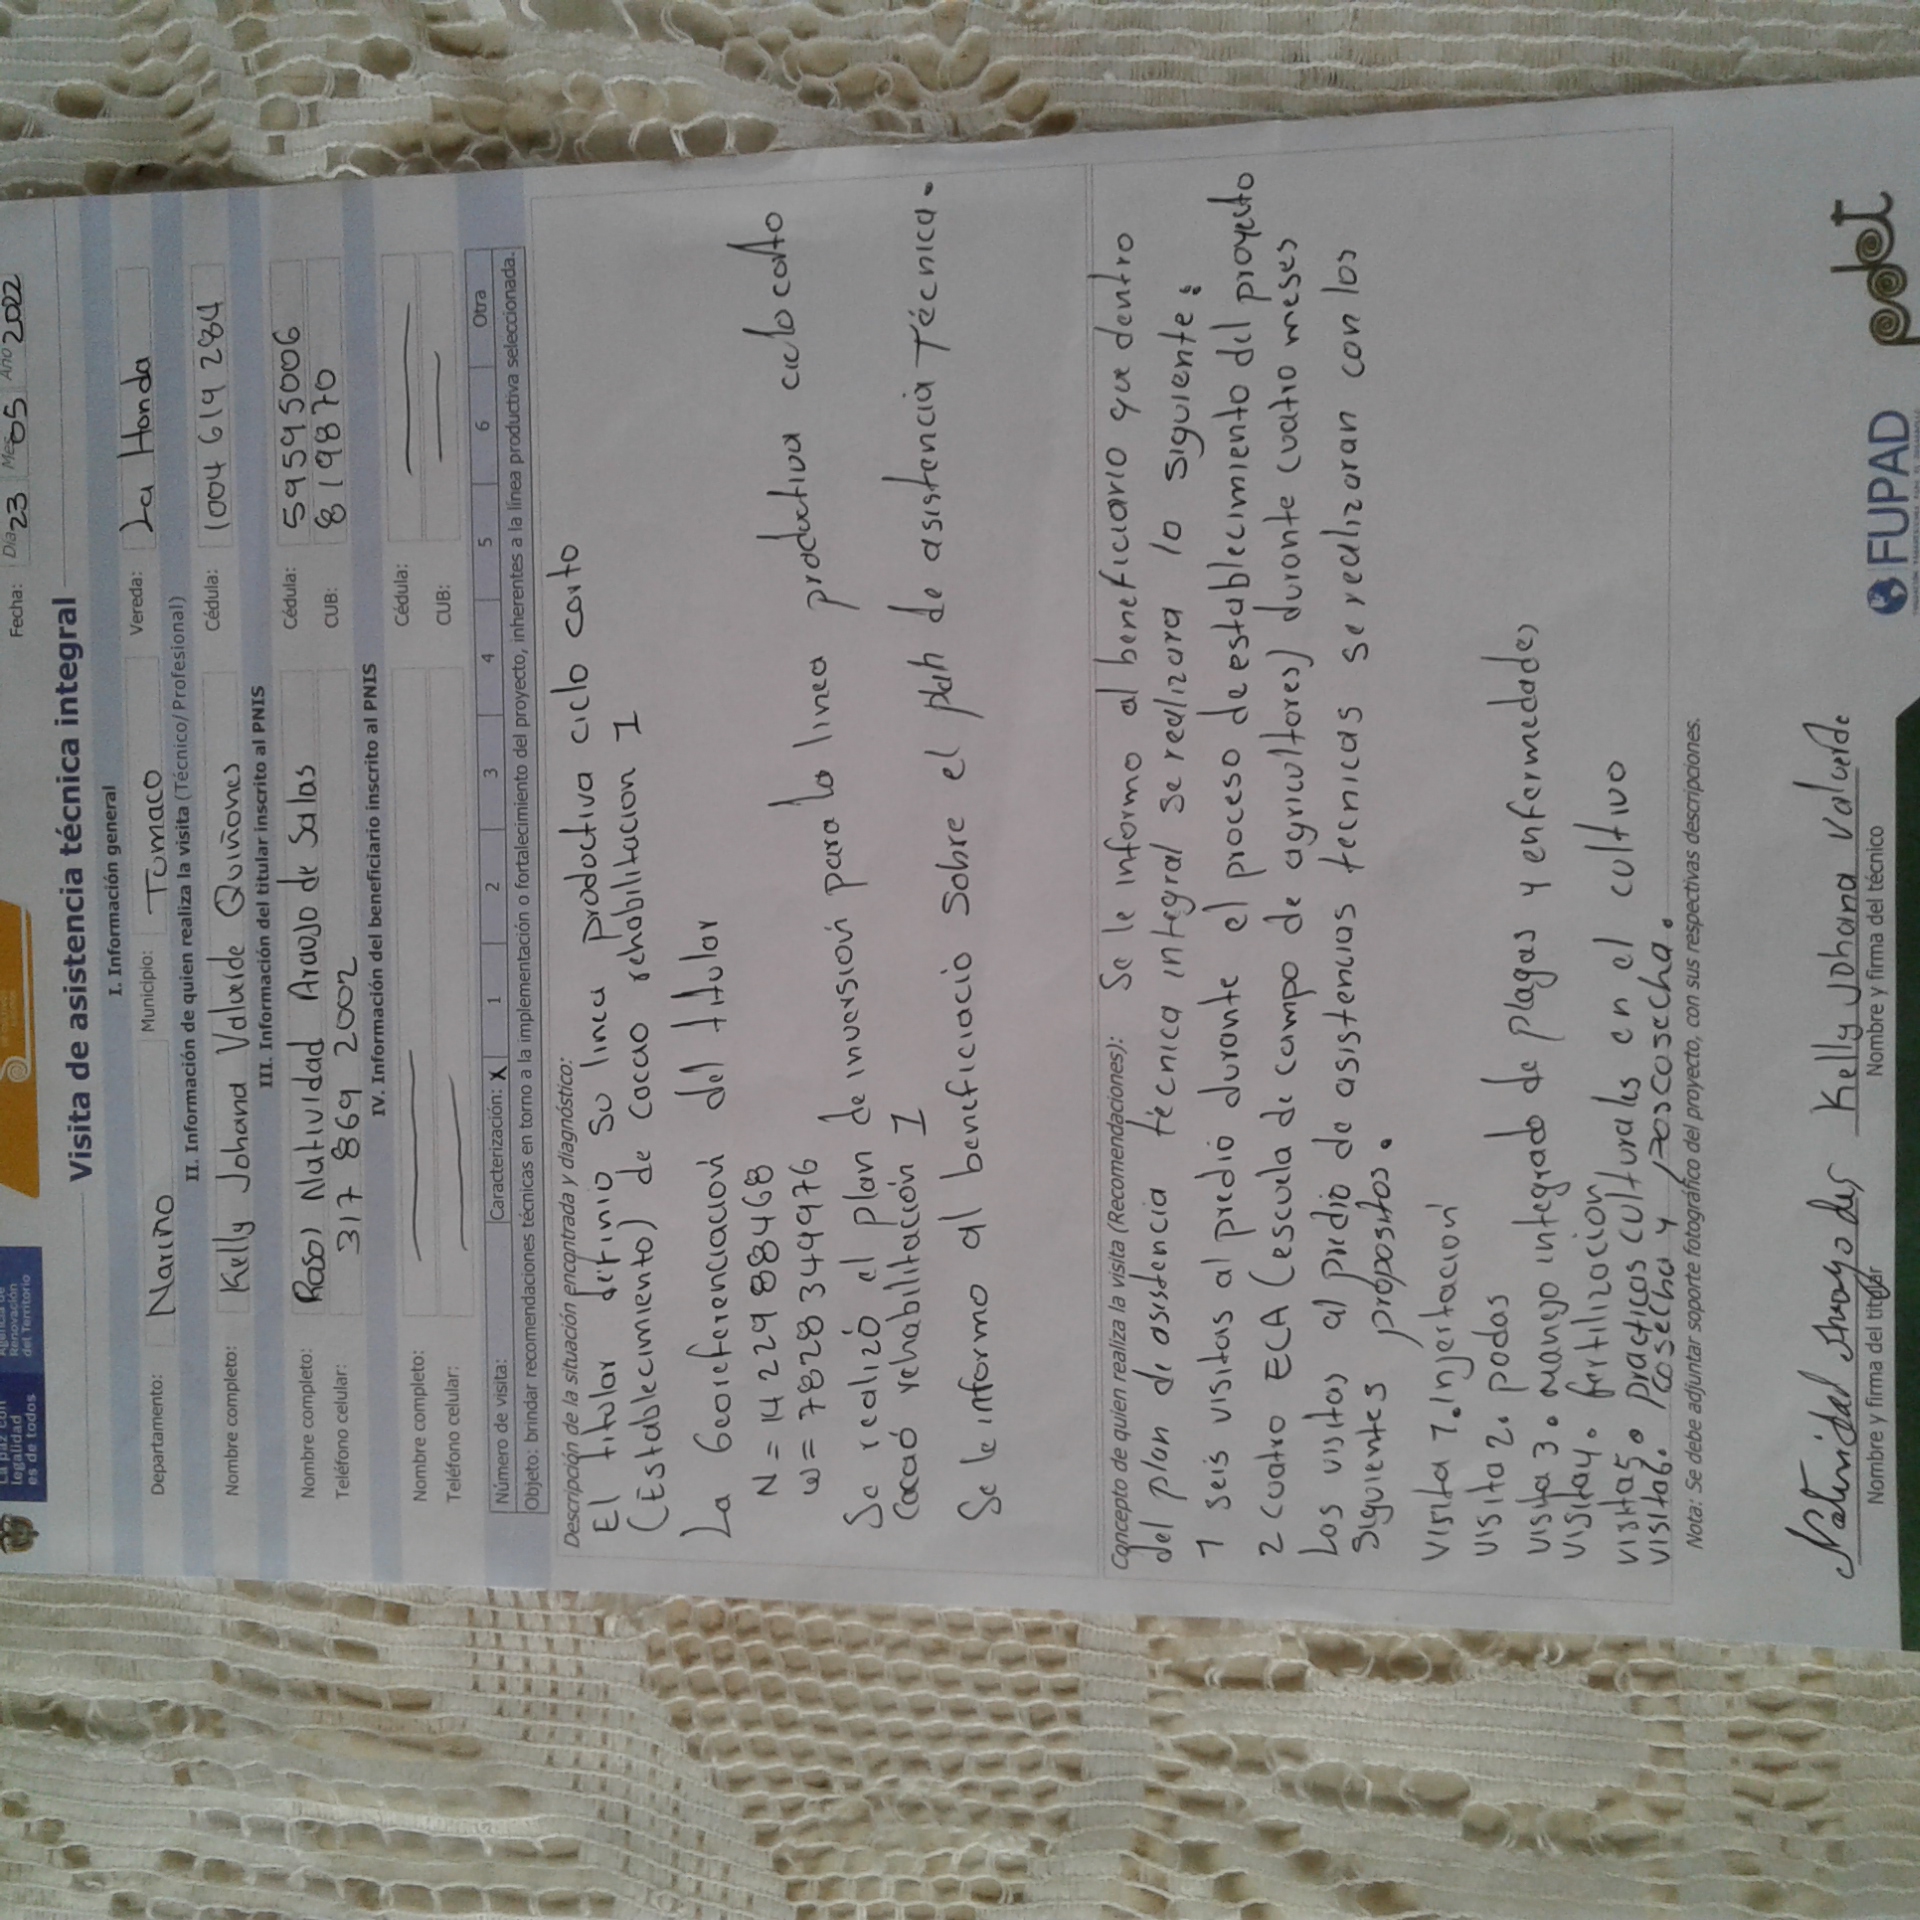 La paz con
legalidad
es de todos
Agencia de
Renovación
del Territorio
Fecha: Día 23 Mes 05 Año 2022
Visita de asistencia técnica integral
I. Información general
Departamento: Nariño Municipio: Tumaco Vereda: La Honda
II. Información de quien realiza la visita (Técnico/Profesional)
Nombre completo: Kelly Johana Valverde Quiñones Cédula: 1004 619 284
III. Información del titular inscrito al PNIS
Nombre completo: Rosa Natividad Araujo de Salas Cédula: 59595006
Teléfono celular: 317 869 2002 CUB: 819870
IV. Información del beneficiario inscrito al PNIS
Nombre completo: Cédula:
Teléfono celular: CUB:
Número de visita: Caracterización: X 1 2 3 4 5 6 Otra
Objeto: brindar recomendaciones técnicas en torno a la implementación o fortalecimiento del proyecto, inherentes a la línea productiva seleccionada.
Descripción de la situación encontrada y diagnóstico:
El titular definio su linea productiva ciclo corto
(Establecimiento) de cacao rehabilitacion 1
La Georeferenciación del titular
N = 14 229 88468
W = 7828 344976
Se realizó el plan de inversión para la linea productiva ciclo corto
Cacaó rehabilitación 1
Se le informo al beneficiacio sobre el plan de asistencia Técnica.
Concepto de quien realiza la visita (Recomendaciones): Se le informo al beneficiario que dentro
del plan de asistencia técnica integral se realizara lo siguiente:
1 seis visitas al predio durante el proceso de establecimiento del proyecto
2 cuatro ECA (escuela de campo de agricultores) durante cuatro meses
Las visitas al predio de asistencias tecnicas se realizaran con los
siguientes propositos.
Visita 1. injertación
Visita 2. podas
visita 3. manejo integrado de plagas y enfermedades
visita 4. fertilizacion
visita 5. practicas culturales en el cultivo
visita 6. cosecha y poscosecha.
Nota: Se debe adjuntar soporte fotográfico del proyecto, con sus respectivas descripciones.
Natividad Araujo des Kelly Johana Valverde
Nombre y firma del titular Nombre y firma del técnico
FUPAD
pdet